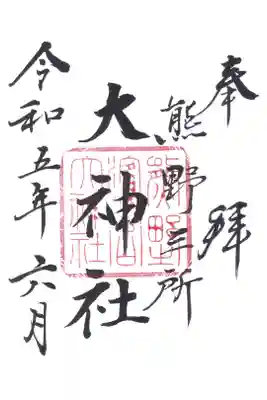 奉拝
熊野三所
大神社
令和五年六月